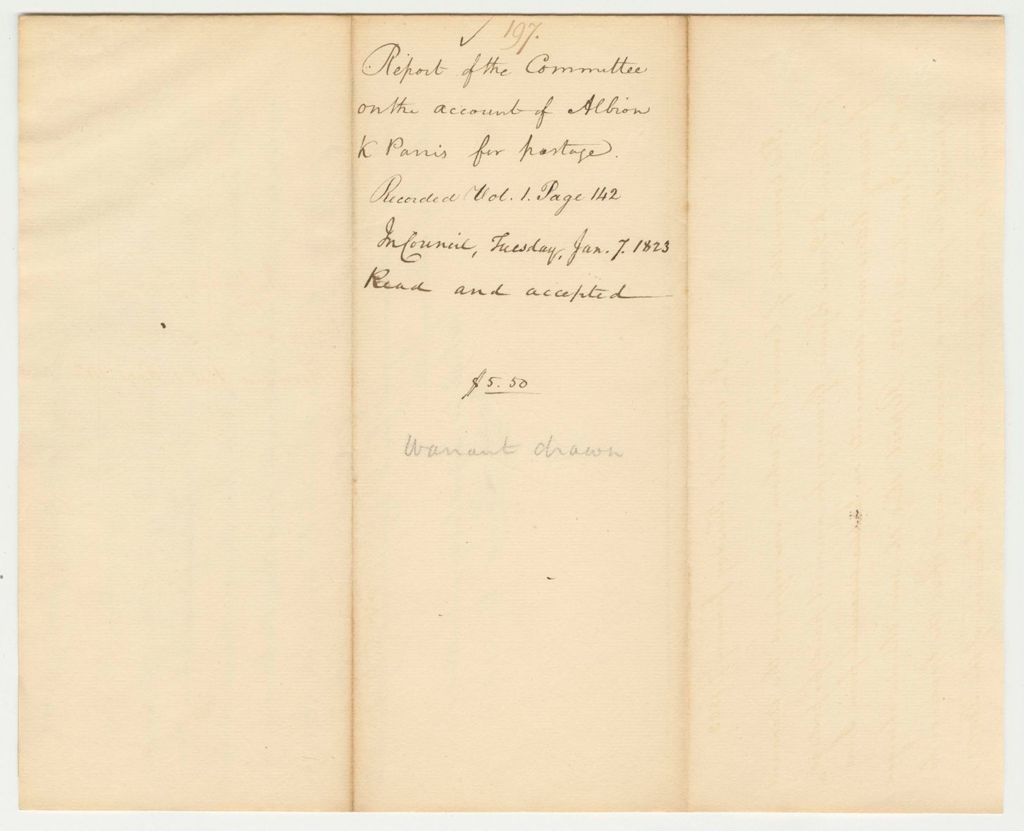 ✓ 197.
Report of the Committee
on the account of Albion
K Parris for postage.
Recorded Vol. 1. Page 142
In Council, Tuesday, Jan. 7. 1823
Read and accepted
$5.50
Warrant drawn